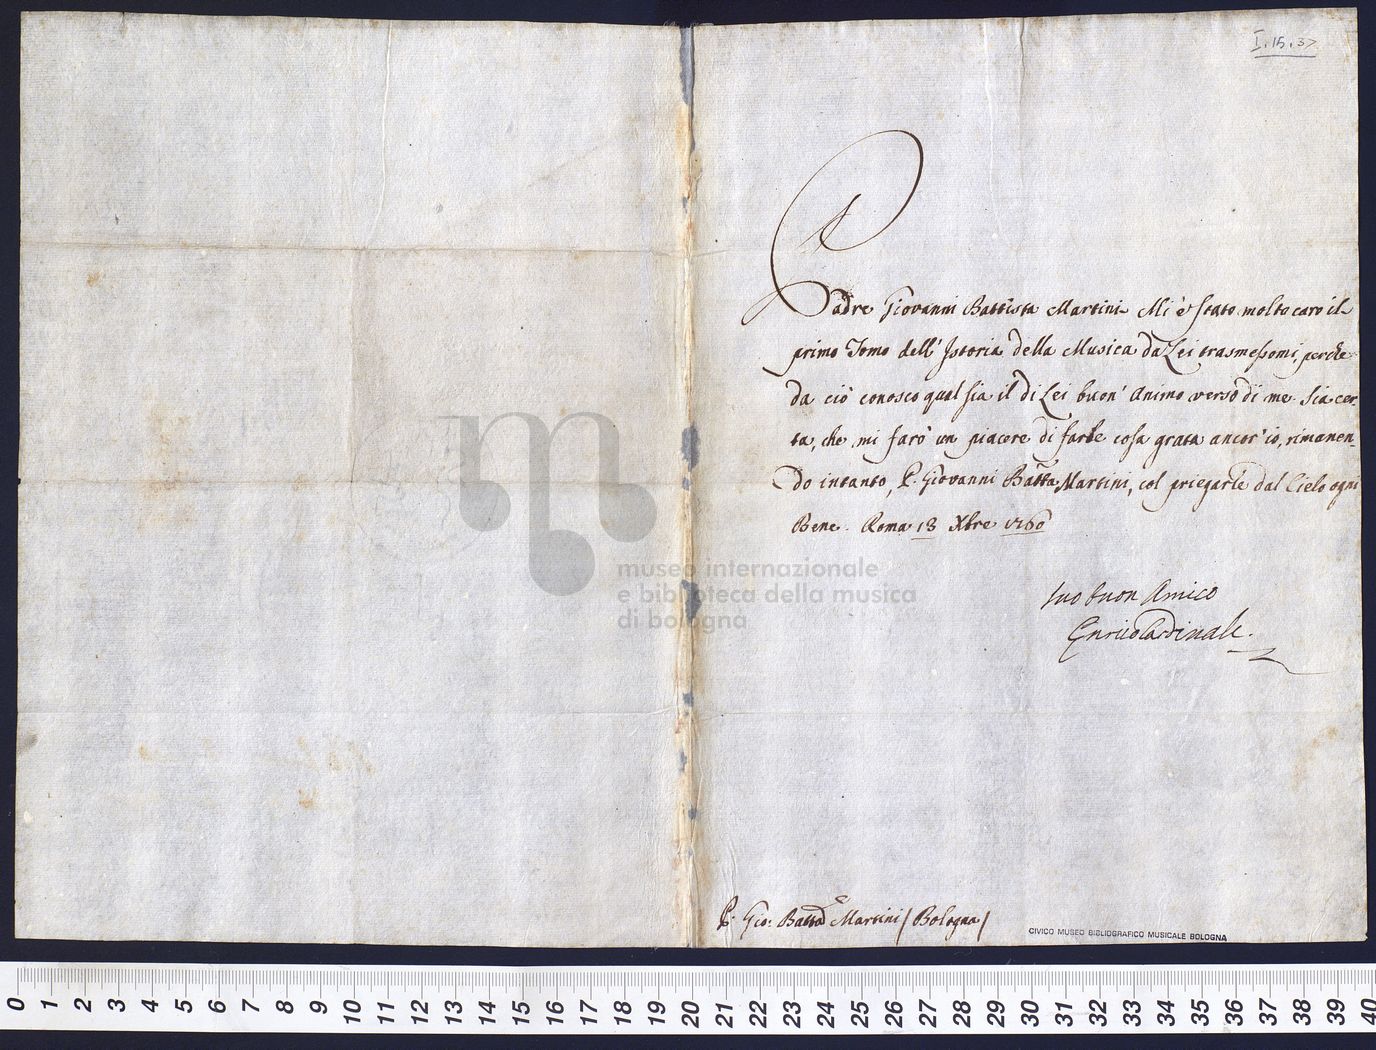 I. 15. 37
Padre Giovanni Battista Martini. Mi è stato molto caro il
primo Tomo dell' Istoria della Musica da Lei trasmessomi, perche
da ciò conosco qual sia il di Lei buon' Animo verso di me. Sia cer-
ta, che mi farò un piacere di farle cosa grata ancor' io, rimanen-
do intanto, P. Giovanni Batta Martini, col priegarle dal Cielo ogni
Bene. Roma 13 Xbre 1760
Suo buon Amico
Enrico Cardinale.
P. Gio: Batta Martini / Bologna /
CIVICO MUSEO BIBLIOGRAFICO MUSICALE BOLOGNA
museo internazionale
e biblioteca della musica
di bologna
0 1 2 3 4 5 6 7 8 9 10 11 12 13 14 15 16 17 18 19 20 21 22 23 24 25 26 27 28 29 30 31 32 33 34 35 36 37 38 39 40